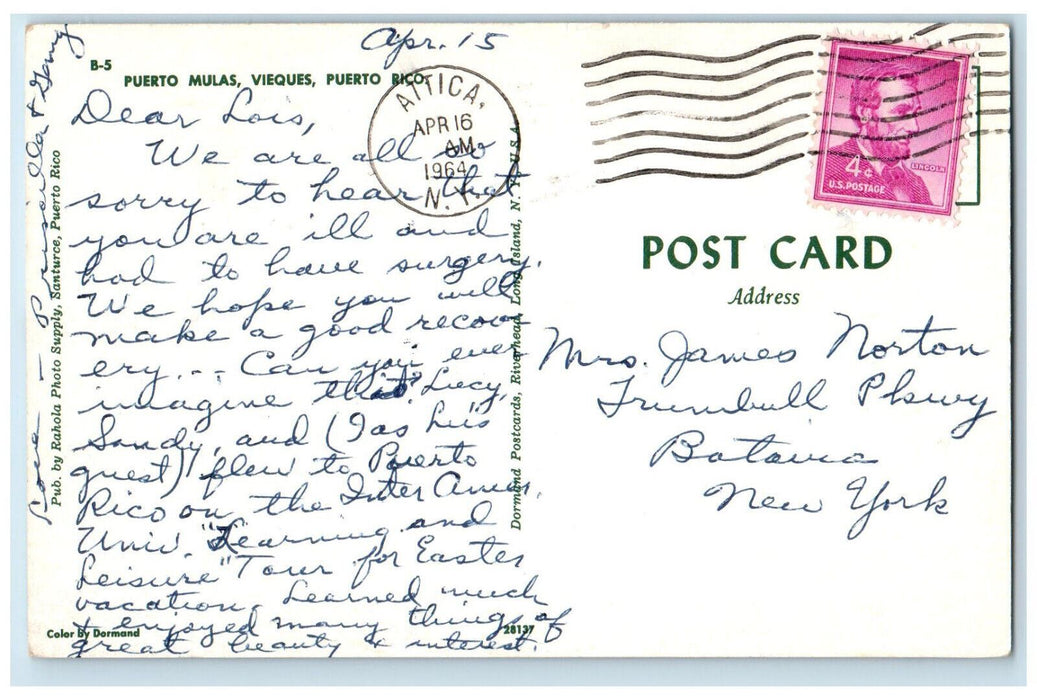 Apr. 15
B-5
PUERTO MULAS, VIEQUES, PUERTO RICO
Dear Lois,
We are all so
sorry to hear that
you are ill and
had to have surgery.
We hope you will
make a good recov-
ery... Can you ever
imagine this? Lucy,
Sandy, and (I as his
guest) flew to Puerto
Rico on the Inter Amer.
Univ. "Learning and
Leisure" Tour for Easter
vacation. Learned much
& enjoyed many things of
great beauty & interest.
Love - Priscilla & Gany
Pub. by Rahola Photo Supply, Santurce, Puerto Rico
Color By Dormand
28137
Dormand Postcards, Riverhead, Long Island, N. Y., U.S.A.
ATTICA,
APR 16
AM
1964
N.Y.
4¢
U.S. POSTAGE
LINCOLN
POST CARD
Address
Mrs. James Norton
Trumbull Pkwy
Batavia
New York